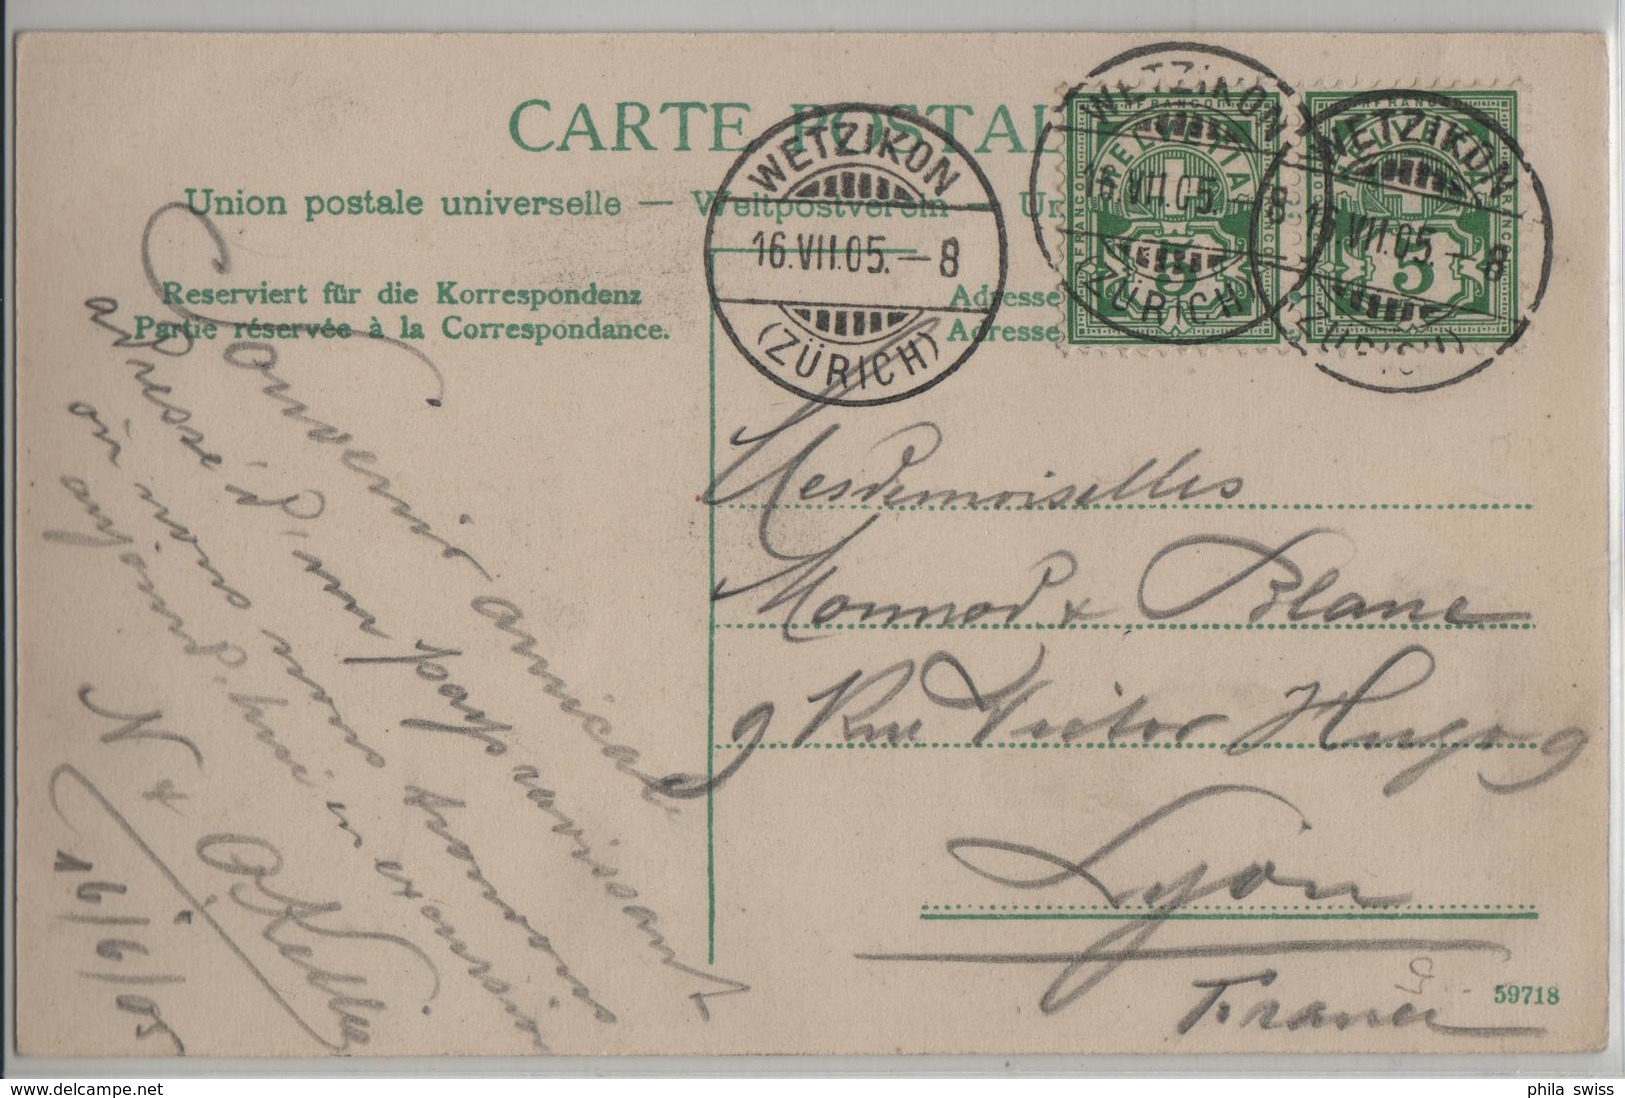 CARTE POSTAL
Union postale universelle — Weltpostverein — Un
Reserviert für die Korrespondenz
Partie réservée à la Correspondance.
Adresse
Adresse
WETZIKON
16.VII.05.–8
(ZÜRICH)
WETZIKON
16.VII.05.–8
(ZÜRICH)
WETZIKON
16.VII.05.–8
(ZÜRICH)
FRANCO
HELVETIA
5
FRANCO
5
Souvenir amical
adressé d'un pays ravissant
où nous nous trouvons
aujourd'hui en excursion
N & A Keller
16/6/05
Mesdemoiselles
Monnod & Blanc
9 Rue Victor Hugo 9
Lyon
France
59718
phila swiss